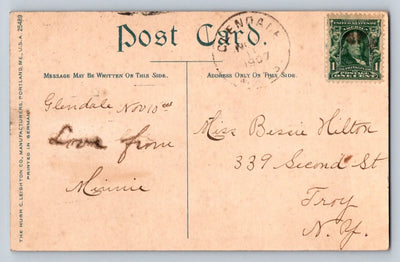 Post Card
GLENDALE
1907
MESSAGE MAY BE WRITTEN ON THIS SIDE.
ADDRESS ONLY ON THIS SIDE.
THE HUGH C. LEIGHTON CO., MANUFACTURERS, PORTLAND, ME., U.S.A. 25489
PRINTED IN GERMANY
Glendale Nov 13
Love from
Minnie
Miss Bessie Hilton
339 Second St
Troy
N. Y.
1 1